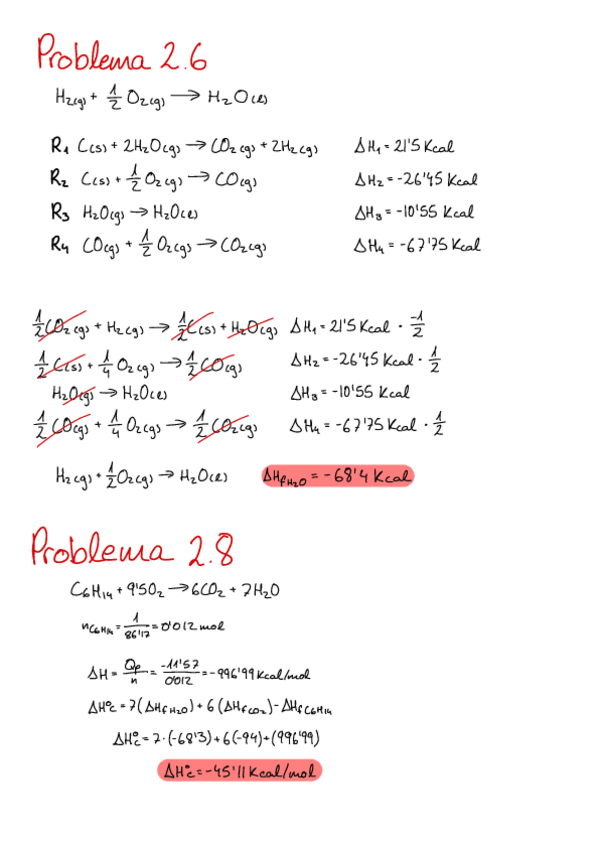 Problema 2.6
H₂(g) + 1/2 O₂(g) → H₂O(l)
R₁ C(s) + 2H₂O(g) → CO₂(g) + 2H₂(g) ΔH₁ = 21'5 Kcal
R₂ C(s) + 1/2 O₂(g) → CO(g) ΔH₂ = -26'45 Kcal
R₃ H₂O(g) → H₂O(l) ΔH₃ = -10'55 Kcal
R₄ CO(g) + 1/2 O₂(g) → CO₂(g) ΔH₄ = -67'75 Kcal
1/2 CO₂(g) + H₂(g) → 1/2 C(s) + H₂O(g) ΔH₁ = 21'5 Kcal · -1/2
1/2 C(s) + 1/4 O₂(g) → 1/2 CO(g) ΔH₂ = -26'45 Kcal · 1/2
H₂O(g) → H₂O(l) ΔH₃ = -10'55 Kcal
1/2 CO(g) + 1/4 O₂(g) → 1/2 CO₂(g) ΔH₄ = -67'75 Kcal · 1/2
H₂(g) + 1/2 O₂(g) → H₂O(l) ΔHfH₂O = -68'4 Kcal
Problema 2.8
C₆H₁₄ + 9'5O₂ → 6CO₂ + 7H₂O
nC₆H₁₄ = 1/86'17 = 0'012 mol
ΔH = Qp/n = -11'57/0'012 = -996'99 Kcal/mol
ΔH°c = 7(ΔHfH₂O) + 6(ΔHfCO₂) - ΔHfC₆H₁₄
ΔH°c = 7·(-68'3) + 6(-94) + (996'99)
ΔH°c = -45'11 Kcal/mol